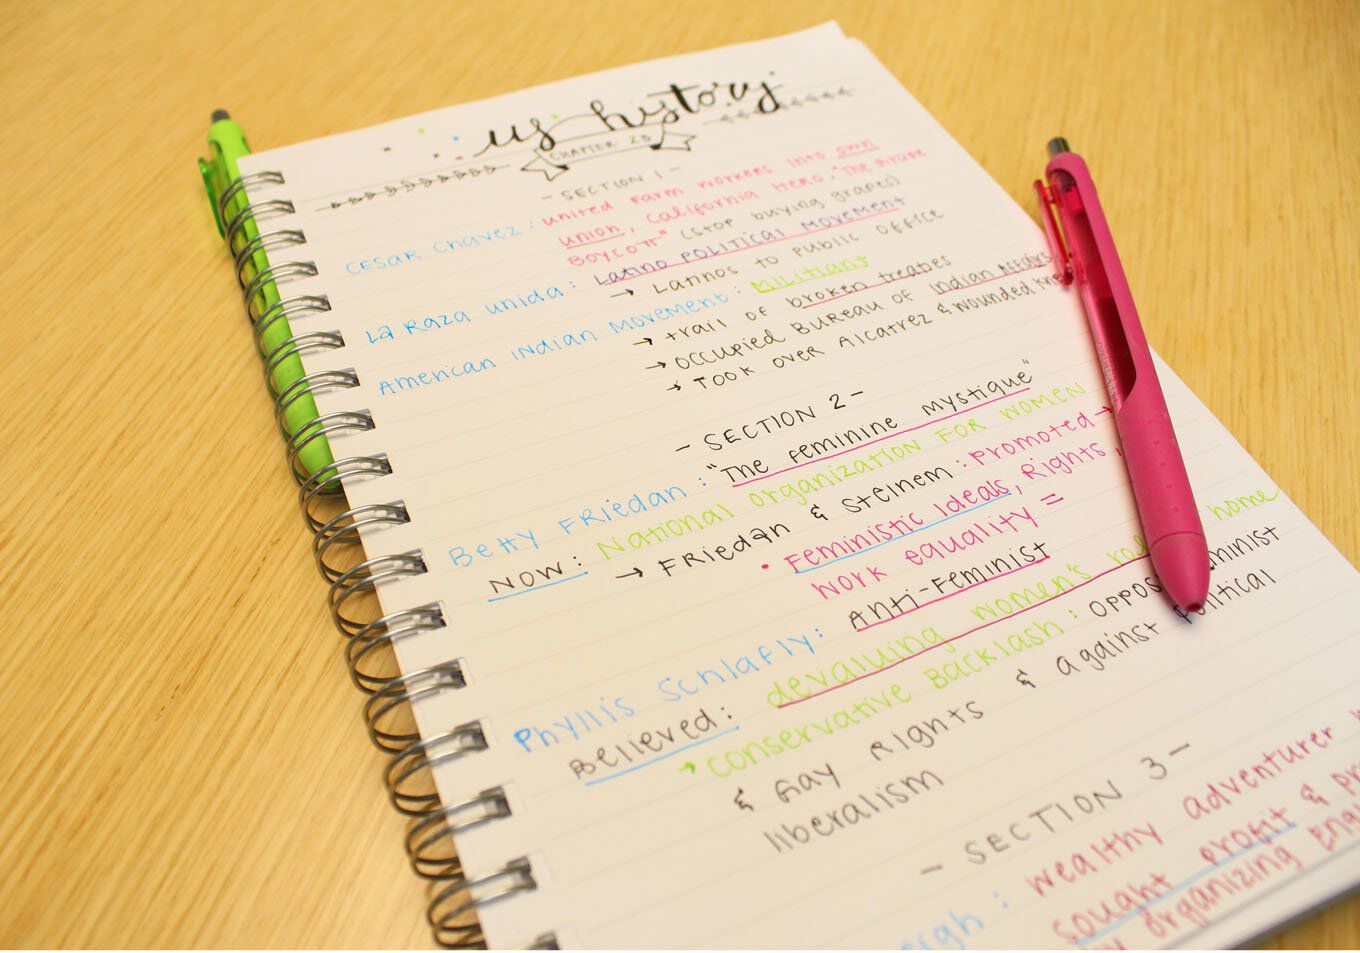 us history
CHAPTER 23
- SECTION 1 -
Cesar Chavez: united Farm workers into own
union, California Hero, "The Grape
Boycott" (stop buying grapes)
La Raza Unida: Latino Political Movement
→ Latinos to public office
American Indian Movement: Militiant
→ trail of broken treaties
→ occupied Bureau of Indian Affairs
→ Took over Alcatrez & Wounded Knee
- SECTION 2 -
Betty Friedan: "The Feminine Mystique"
NOW: National organization for women
→ Friedan & Steinem: Promoted →
• Feministic Ideals, Rights,
work equality =
Phyllis Schlafly: Anti-Feminist
Believed: devaluing women's home
→ conservative Backlash: feminist
& Gay Rights & against Political
liberalism
- SECTION 3 -
: wealthy adventurer
sought profit &
organizing